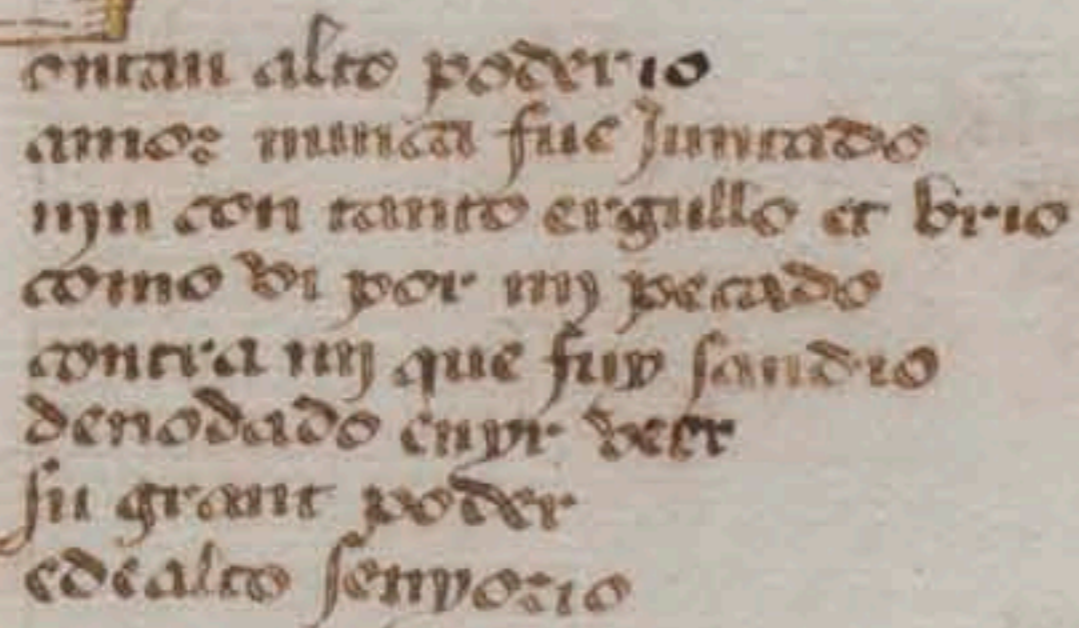 en tan alto poderio
amor nunca fue Juntado
njn con tanto ergullo et brio
como vi por mj pecado
contra mj que fuy sandio
denodado en yr veer
su grant poder
e de alto senyorio